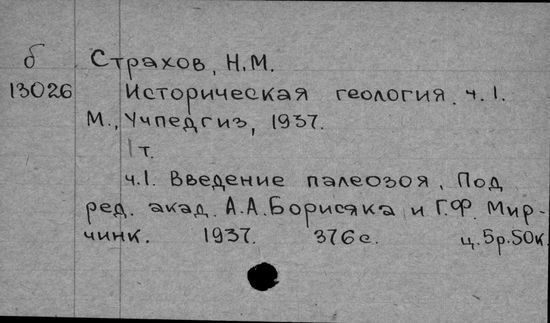 б Страхов, Н.М.
13026 Историческая геология. ч.1.
М., Учпедгиз, 1937.
1 т.
ч.1. Введение палеозоя. Под
ред. акад. А.А.Борисяка и Г.Ф. Мир-
чинк. 1937. 376с. ц.5р.50к.